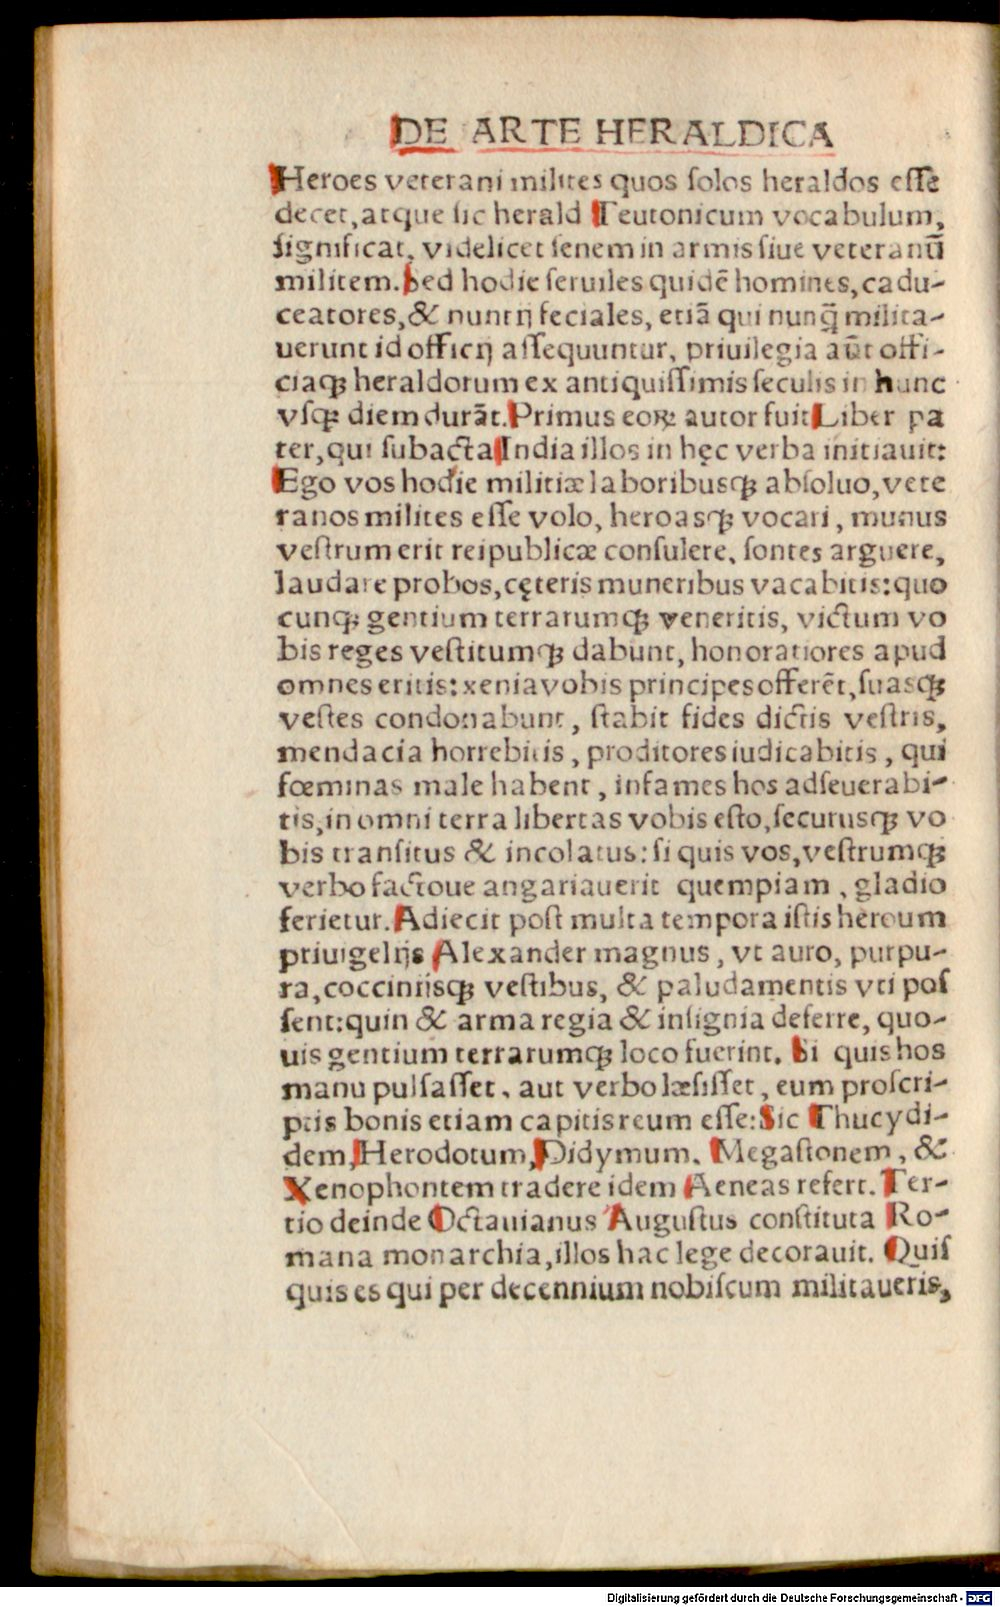 DE ARTE HERALDICA
Heroes veterani milites quos ſolos heraldos eſſe
decet, atque ſic herald Teutonicum vocabulum,
ſignificat, videlicet ſenem in armis ſiue veteranū
militem. Sed hodie ſeruiles quidē homines, cadu-
ceatores, & nuntij feciales, etiā qui nunq̄ milita-
uerunt id officij aſſequuntur, priuilegia aūt offi-
ciaqꝫ heraldorum ex antiquiſſimis ſeculis in hunc
vſqꝫ diem durāt. Primus eoꝝ autor fuit Liber pa
ter, qui ſubacta India illos in hęc verba initiauit:
Ego vos hodie militiæ laboribusqꝫ abſoluo, vete
ranos milites eſſe volo, heroasqꝫ vocari, munus
veſtrum erit reipublicæ conſulere, ſontes arguere,
laudare probos, cęteris muneribus vacabitis: quo
cunqꝫ gentium terrarumqꝫ veneritis, victum vo
bis reges veſtitumqꝫ dabunt, honoratiores apud
omnes eritis: xenia vobis principes offerēt, ſuasqꝫ
veſtes condonabunt, ſtabit fides dictis veſtris,
mendacia horrebitis, proditores iudicabitis, qui
fœminas male habent, infames hos adſeuerabi-
tis, in omni terra libertas vobis eſto, ſecurusqꝫ vo
bis tranſitus & incolatus: ſi quis vos, veſtrumqꝫ
verbo factoue angariauerit quempiam, gladio
ferietur. Adiecit poſt multa tempora iſtis heroum
priuigelijs Alexander magnus, vt auro, purpu-
ra, cocciniisqꝫ veſtibus, & paludamentis vti poſ
ſent: quin & arma regia & inſignia deferre, quo-
uis gentium terrarumqꝫ loco fuerint. Si quis hos
manu pulſaſſet, aut verbo læſiſſet, eum proſcri-
ptis bonis etiam capitis reum eſſe: Sic Thucydi-
dem, Herodotum, Didymum. Megaſtonem, &
Xenophontem tradere idem Aeneas refert. Ter-
tio deinde Octauianus Auguſtus conſtituta Ro-
mana monarchia, illos hac lege decorauit. Quiſ
quis es qui per decennium nobiſcum militaueris,
Digitalisierung gefördert durch die Deutsche Forschungsgemeinschaft - DFG